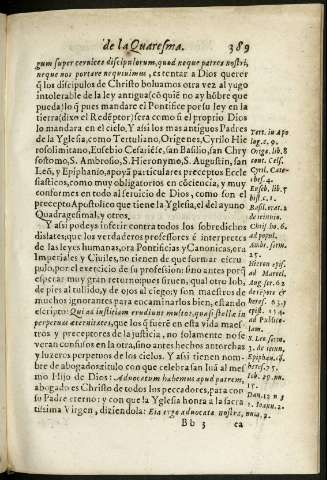 de la Quaresma. 389
gum super cervices discipulorum, quod neque patres nostri,
neque nos portare nequiuimus, es tentar a Dios querer
q̃ los discipulos de Christo boluamos otra vez al yugo
intolerable de la ley antigua (cõ quiẽ no ay hõbre que
pueda) lo q̃ pues mandare el Pontifice por su ley en la
tierra (dixo el Redẽptor) sera como si el proprio Dios
lo mandara en el cielo. Y asi los mas antiguos Padres
de la Yglesia, como Tertuliano, Origenes, Cyrilo Hie
rosolimitano, Eusebio Cesariẽse, san Basilio, san Chry
sostomo, S. Ambrosio, S. Hieronymo, S. Augustin, san
Leõ, y Epiphanio, apoyã particulares preceptos Eccle
siasticos, como muy obligatorios en cõciencia, y muy
conformes en todo al seruicio de Dios, como son el
precepto Apostolico que tiene la Yglesia, el del ayuno
Quadragesimal, y otros.
Y asi podeys inferir contra todos los sobredichos
dislates; que los verdaderos professores è interpretes
de las leyes humanas, ora Pontificias y Canonicas, ora
Imperiales y Ciuiles, no tienen de que formar escru
pulo, por el exercicio de su profession: sino antes porq̃
esperar muy gran retorno; pues siruen, qual otro Iob,
de pies al tullido, y de ojos al ciego; y son maestros de
muchos ignorantes para encaminarlos bien, estando
escripto: Qui ad iustitiam erudiunt multos, quasi stellæ in
perpetuas æternitates, que los q̃ fuerẽ en esta vida maes-
tros y preceptores de la justicia, no solamente no se
veran confusos en la otra, sino antes hechos antorchas
y luzeros perpetuos de los cielos. Y asi tienen nom-
bre de abogados: titulo con que celebra san Iuã al mes
mo Hijo de Dios: Aduocatum habemus apud patrem,
abogado es Christo de todos los peccadores, para con
su Padre eterno: y con que la Yglesia honra a la sacra
tissima Virgen, diziendola: Eia ergo aduocata nostra,
Bb 3 ca
Tert. in Apo
log. c. 9.
Orige. lib. 8
cont. Cels.
Cyril. Cate-
ches. 4.
Euseb. lib. 5
hist. c. 1.
Basil. orat. 2
de ieiunio.
Chris. ho. 6.
ad popul.
Ambr. serm.
25.
Hieron. epis.
ad Marcel.
Aug. ser. 62